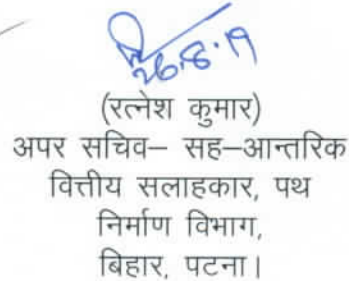 26.8.19
(रत्नेश कुमार)
अपर सचिव– सह–आन्तरिक
वित्तीय सलाहकार, पथ
निर्माण विभाग,
बिहार, पटना।